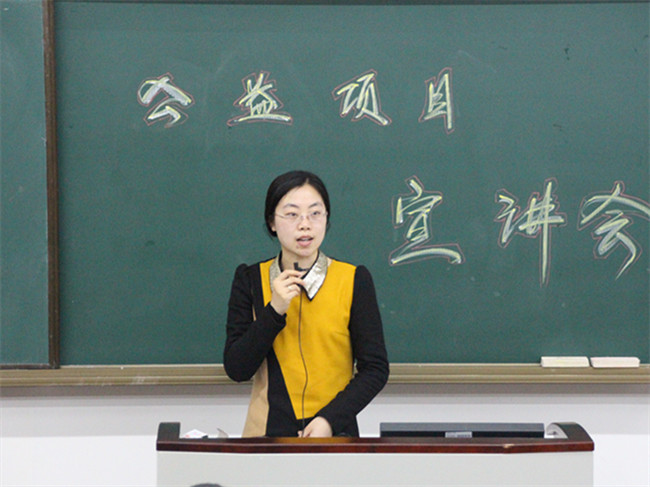 公益项目
宣讲会